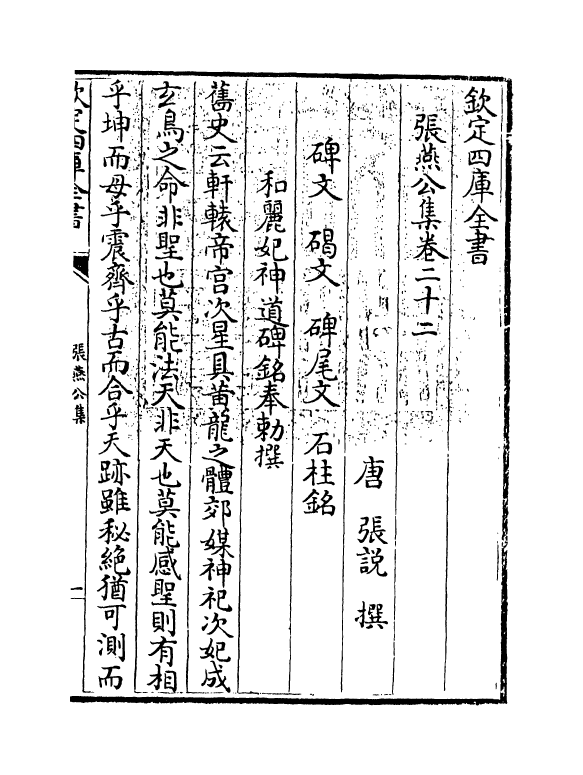 欽定四庫全書
張燕公集卷二十二
唐 張説 撰
碑文 碣文 碑尾文 石柱銘
和麗妃神道碑銘奉勅撰
舊史云軒轅帝宫次星具黄龍之體郊媒神祀次妃成
玄鳥之命非聖也莫能法天非天也莫能感聖則有相
乎坤而母乎震齊乎古而合乎天跡雖秘絶猶可測而
欽定四庫全書
張燕公集
一